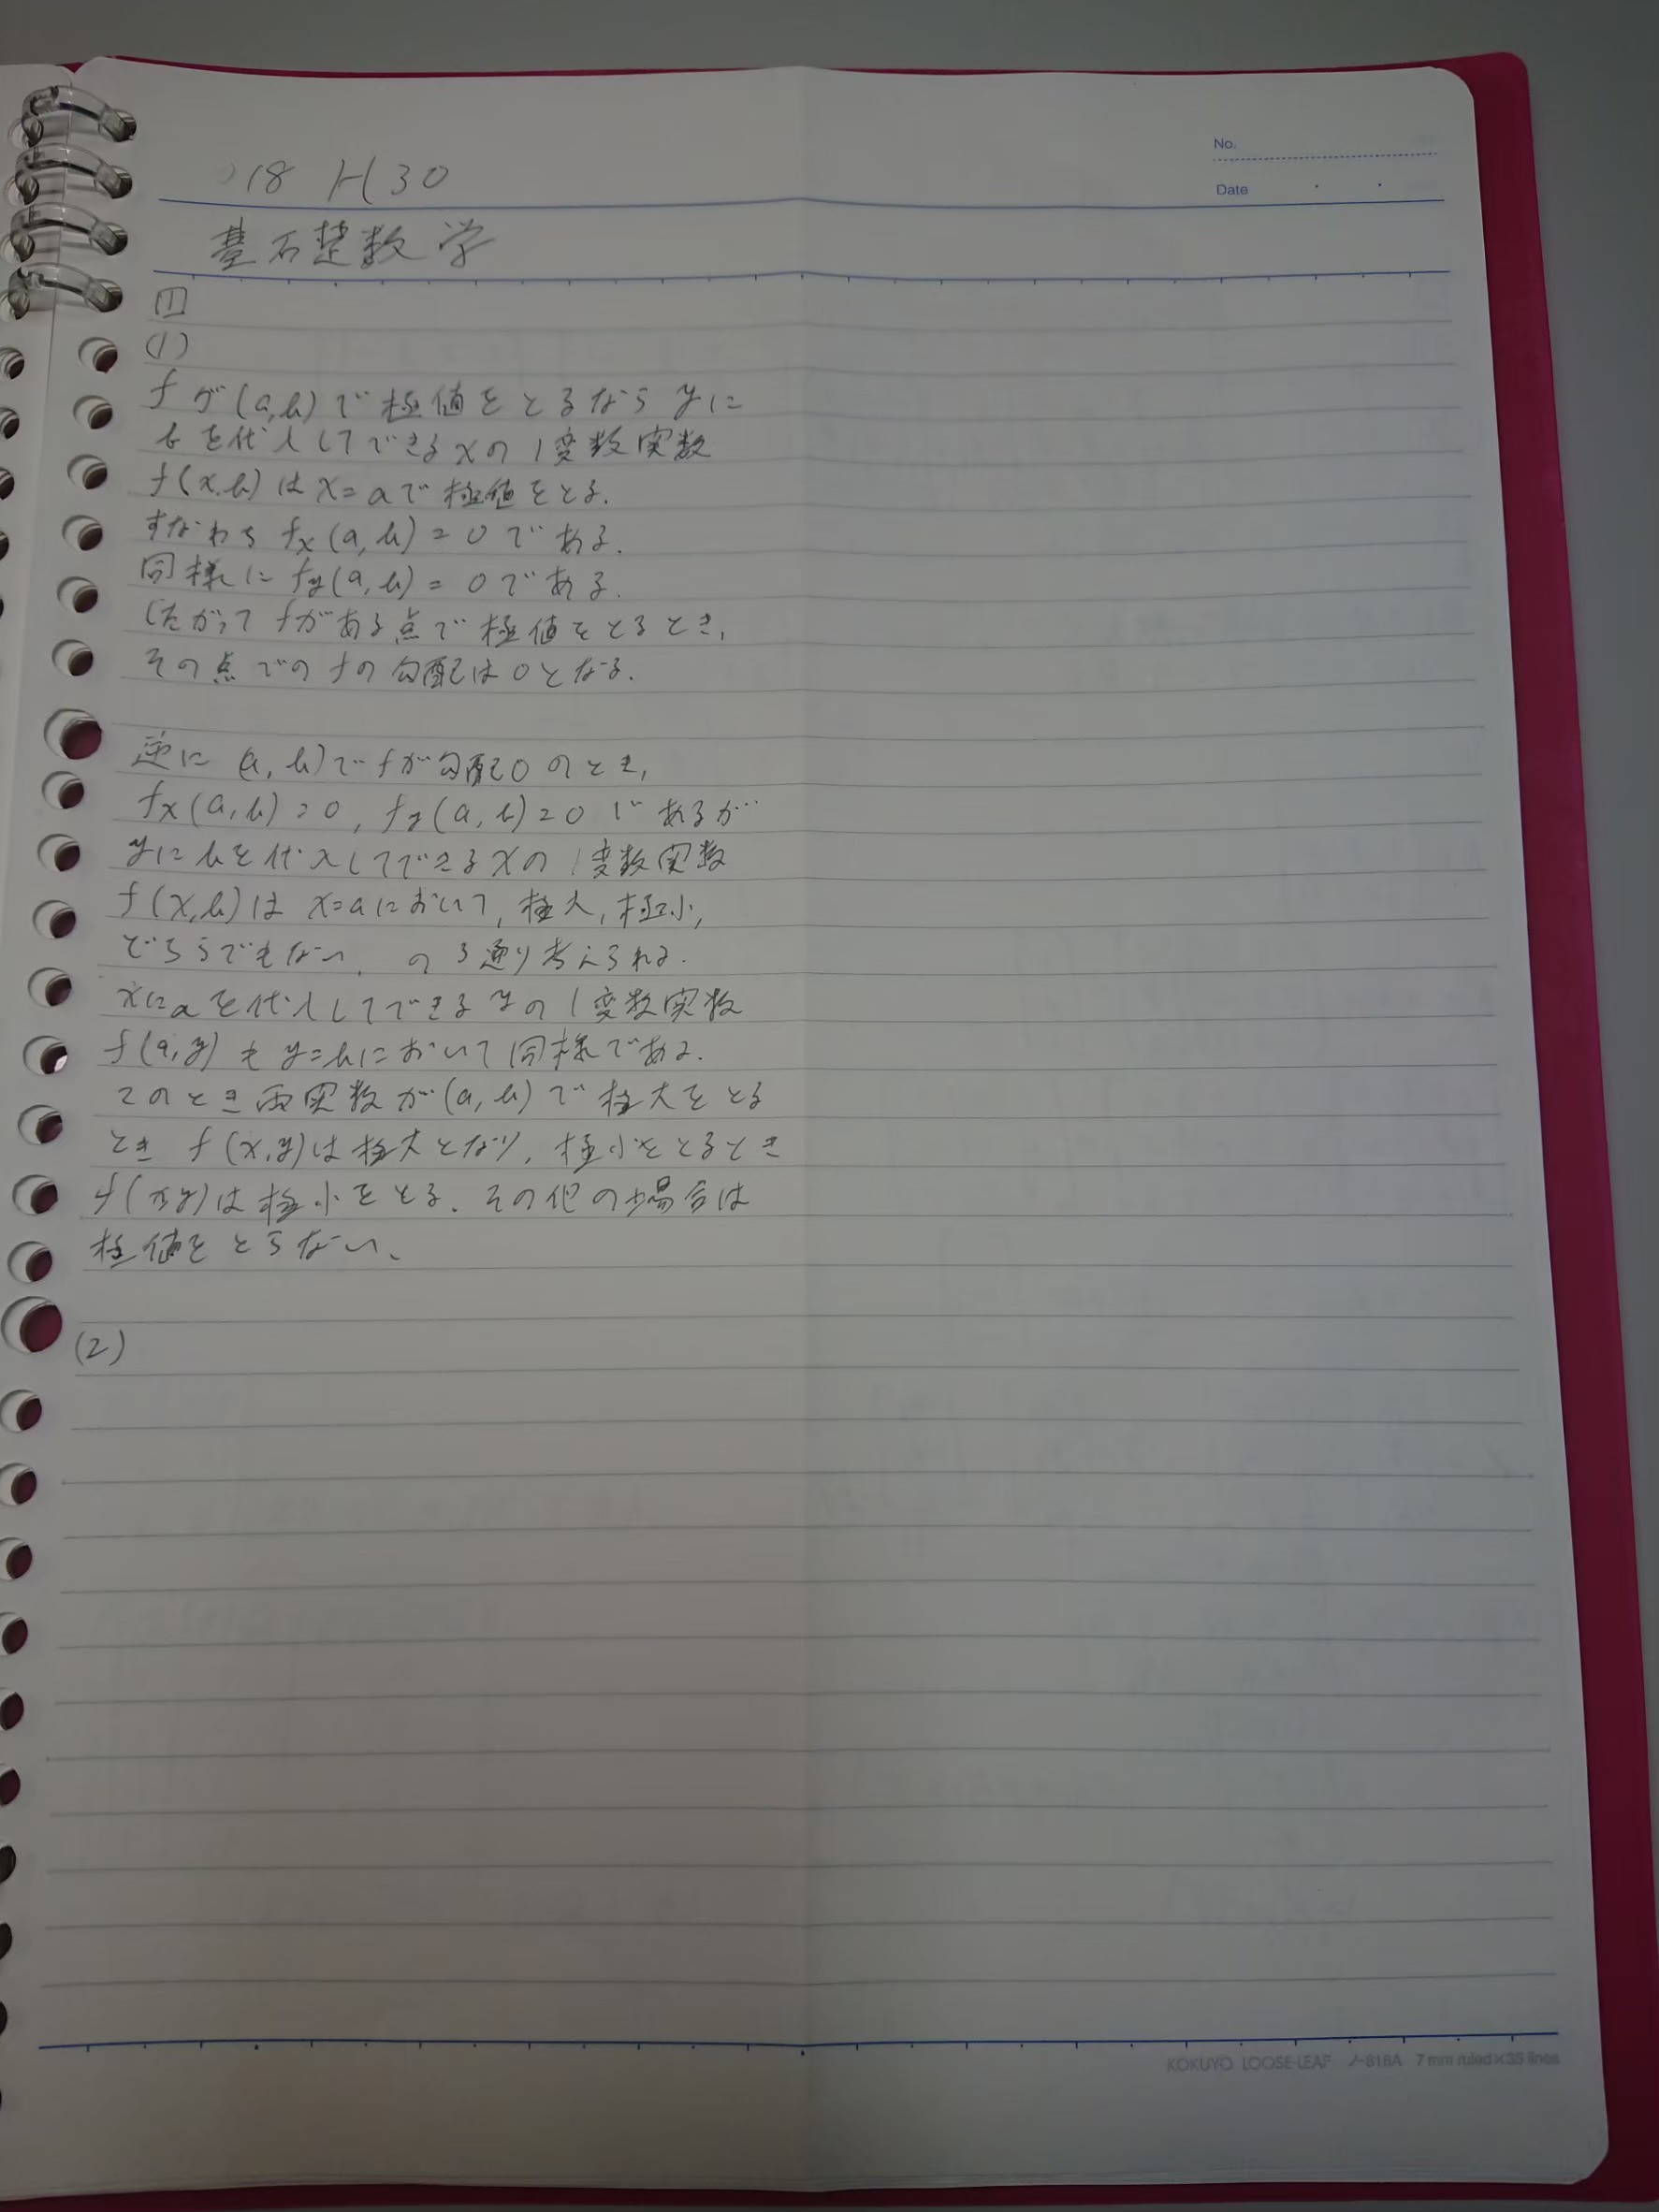 '18 H30
No.
Date
基礎数学
1
(1)
fが(a,b)で極値をとるならyに
bを代入してできるxの1変数実数
f(x,b)はx=aで極値をとる.
すなわちfx(a,b)=0である.
同様にfy(a,b)=0である.
したがってfがある点で極値をとるとき,
その点でのfの勾配は0となる.
逆に(a,b)でfが勾配0のとき,
fx(a,b)=0, fy(a,b)=0であるが…
yにbを代入してできるxの1変数実数
f(x,b)はx=aにおいて,極大,極小,
どちらでもない,の3通り考えられる.
xにaを代入してできるyの1変数実数
f(a,y)もy=bにおいて同様である.
このとき両実数が(a,b)で極大をとる
ときf(x,y)は極大となり,極小をとるとき
f(x,y)は極小をとる.その他の場合は
極値をとらない、
(2)
KOKUYO LOOSE-LEAF ノ-816A 7 mm ruled×35 lines